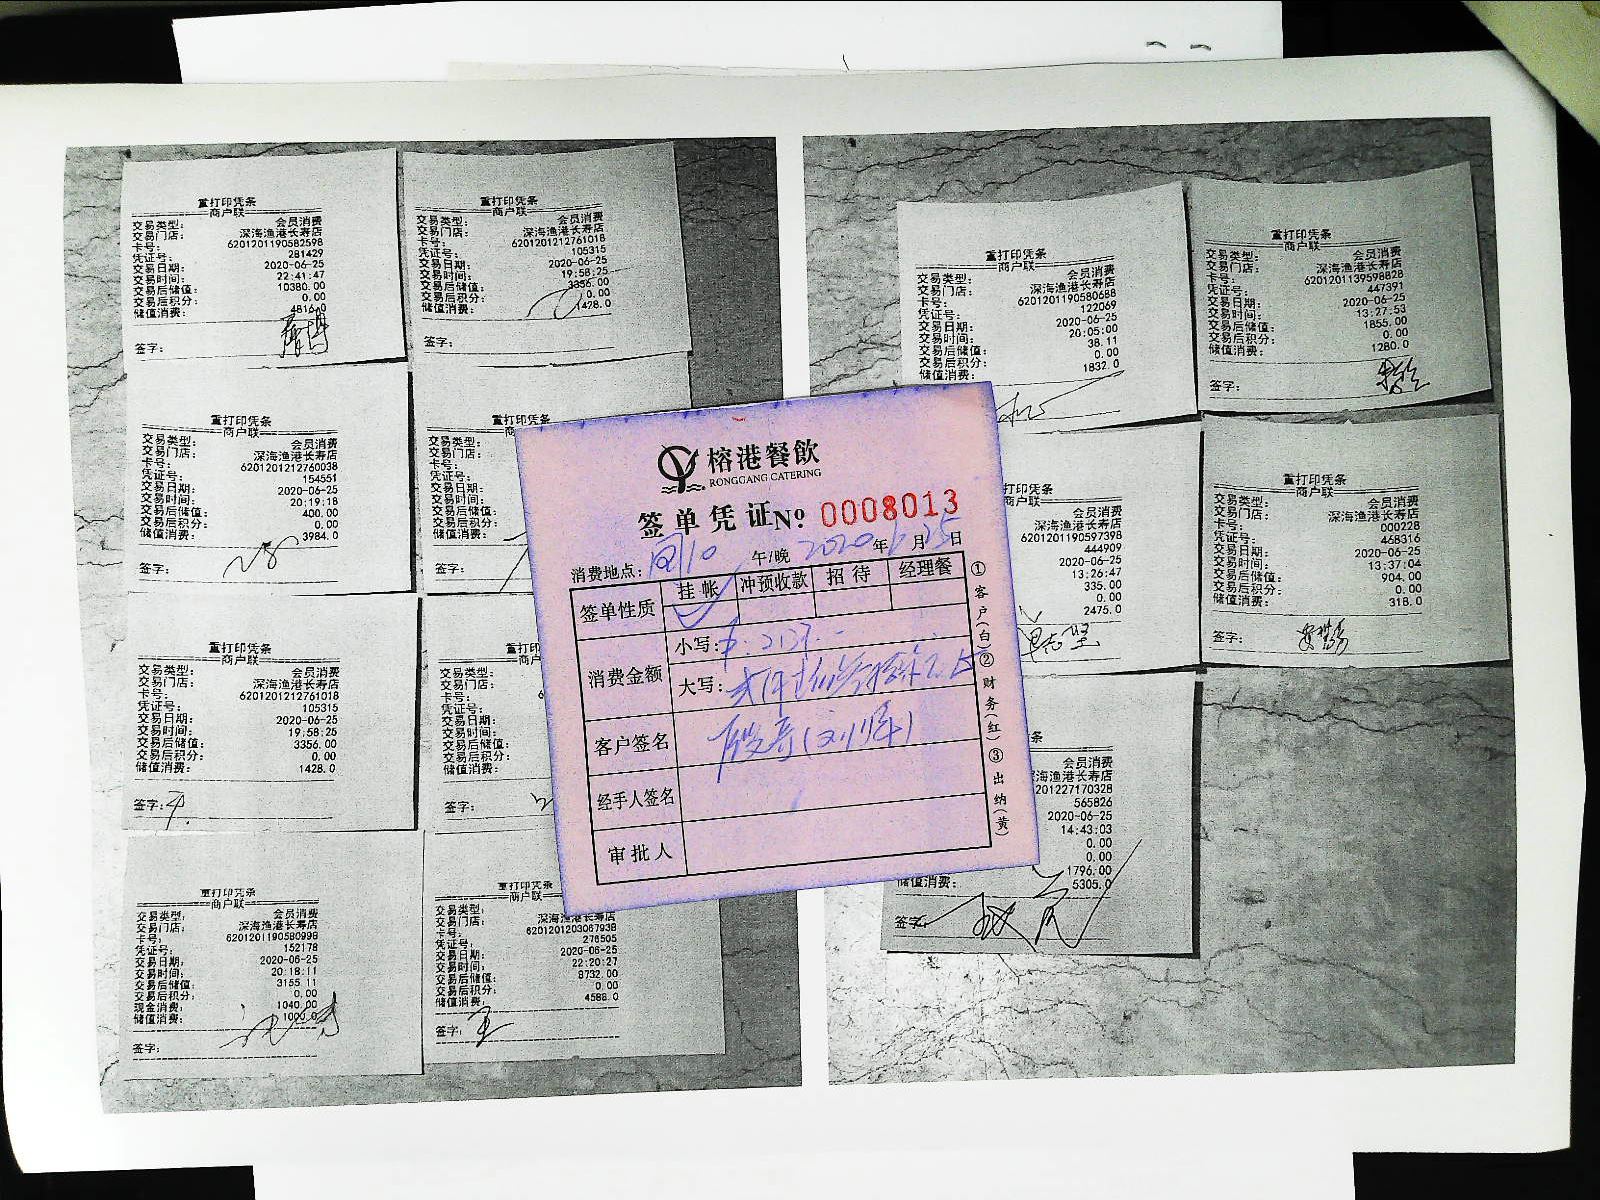 重打印凭条
商户联
交易类型: 会员消费
交易门店: 深海渔港长寿店
卡号: 6201201190582598
凭证号: 281429
交易日期: 2020-06-25
交易时间: 22:41:47
交易后储值: 10380.00
交易后积分: 0.00
储值消费: 4816.0
签字:
重打印凭条
商户联
交易类型: 会员消费
交易门店: 深海渔港长寿店
卡号: 6201201212761018
凭证号: 105315
交易日期: 2020-06-25
交易时间: 19:58:25
交易后储值: 3356.00
交易后积分: 0.00
储值消费: 1428.0
签字:
重打印凭条
商户联
交易类型: 会员消费
交易门店: 深海渔港长寿店
卡号: 6201201212760038
凭证号: 154551
交易日期: 2020-06-25
交易时间: 20:19:18
交易后储值: 400.00
交易后积分: 0.00
储值消费: 3984.0
签字:
重打印凭条
商
交易类型:
交易门店:
卡号:
凭证号:
交易日期:
交易时间:
交易后储值:
交易后积分:
储值消费:
签字:
重打印凭条
商户联
交易类型: 会员消费
交易门店: 深海渔港长寿店
卡号: 6201201212761018
凭证号: 105315
交易日期: 2020-06-25
交易时间: 19:58:25
交易后储值: 3356.00
交易后积分: 0.00
储值消费: 1428.0
签字:
重打印凭条
商户联
交易类型:
交易门店:
卡号:
凭证号:
交易日期:
交易时间:
交易后储值:
交易后积分:
储值消费:
签字:
重打印凭条
商户联
交易类型: 会员消费
交易门店: 深海渔港长寿店
卡号: 6201201190580998
凭证号: 152178
交易日期: 2020-06-25
交易时间: 20:18:11
交易后储值: 3155.11
交易后积分: 0.00
现金消费: 1040.00
储值消费: 1000.0
签字:
重打印凭条
商户联
交易类型: 会员消费
交易门店: 深海渔港长寿店
卡号: 6201201203067938
凭证号: 276505
交易日期: 2020-06-25
交易时间: 22:20:27
交易后储值: 8732.00
交易后积分: 0.00
储值消费: 4588.0
签字:
榕港餐飲
RONGGANG CATERING
签单凭证№ 0008013
消费地点: 午/晚 2020年6月25日
签单性质 挂帐 冲预收款 招待 经理餐
消费金额 小写:
大写:
客户签名
经手人签名
审批人
①客户(白)②财务(红)③出纳(黄)
重打印凭条
商户联
交易类型: 会员消费
交易门店: 深海渔港长寿店
卡号: 6201201190580688
凭证号: 122069
交易日期: 2020-06-25
交易时间: 20:05:00
交易后储值: 38.11
交易后积分: 0.00
储值消费: 1832.0
重打印凭条
商户联
交易类型: 会员消费
交易门店: 深海渔港长寿店
卡号: 6201201139598828
凭证号: 447391
交易日期: 2020-06-25
交易时间: 13:27:53
交易后储值: 1855.00
交易后积分: 0.00
储值消费: 1280.0
签字:
打印凭条
户联
会员消费
深海渔港长寿店
6201201190597398
444909
2020-06-25
13:26:47
335.00
0.00
2475.0
重打印凭条
商户联
交易类型: 会员消费
交易门店: 深海渔港长寿店
卡号: 000228
凭证号: 468316
交易日期: 2020-06-25
交易时间: 13:37:04
交易后储值: 904.00
储值消费: 318.0
签字:
条
会员消费
海渔港长寿店
201227170328
565826
2020-06-25
14:43:03
0.00
0.00
1796.00
储值消费: 5305.0
签字: